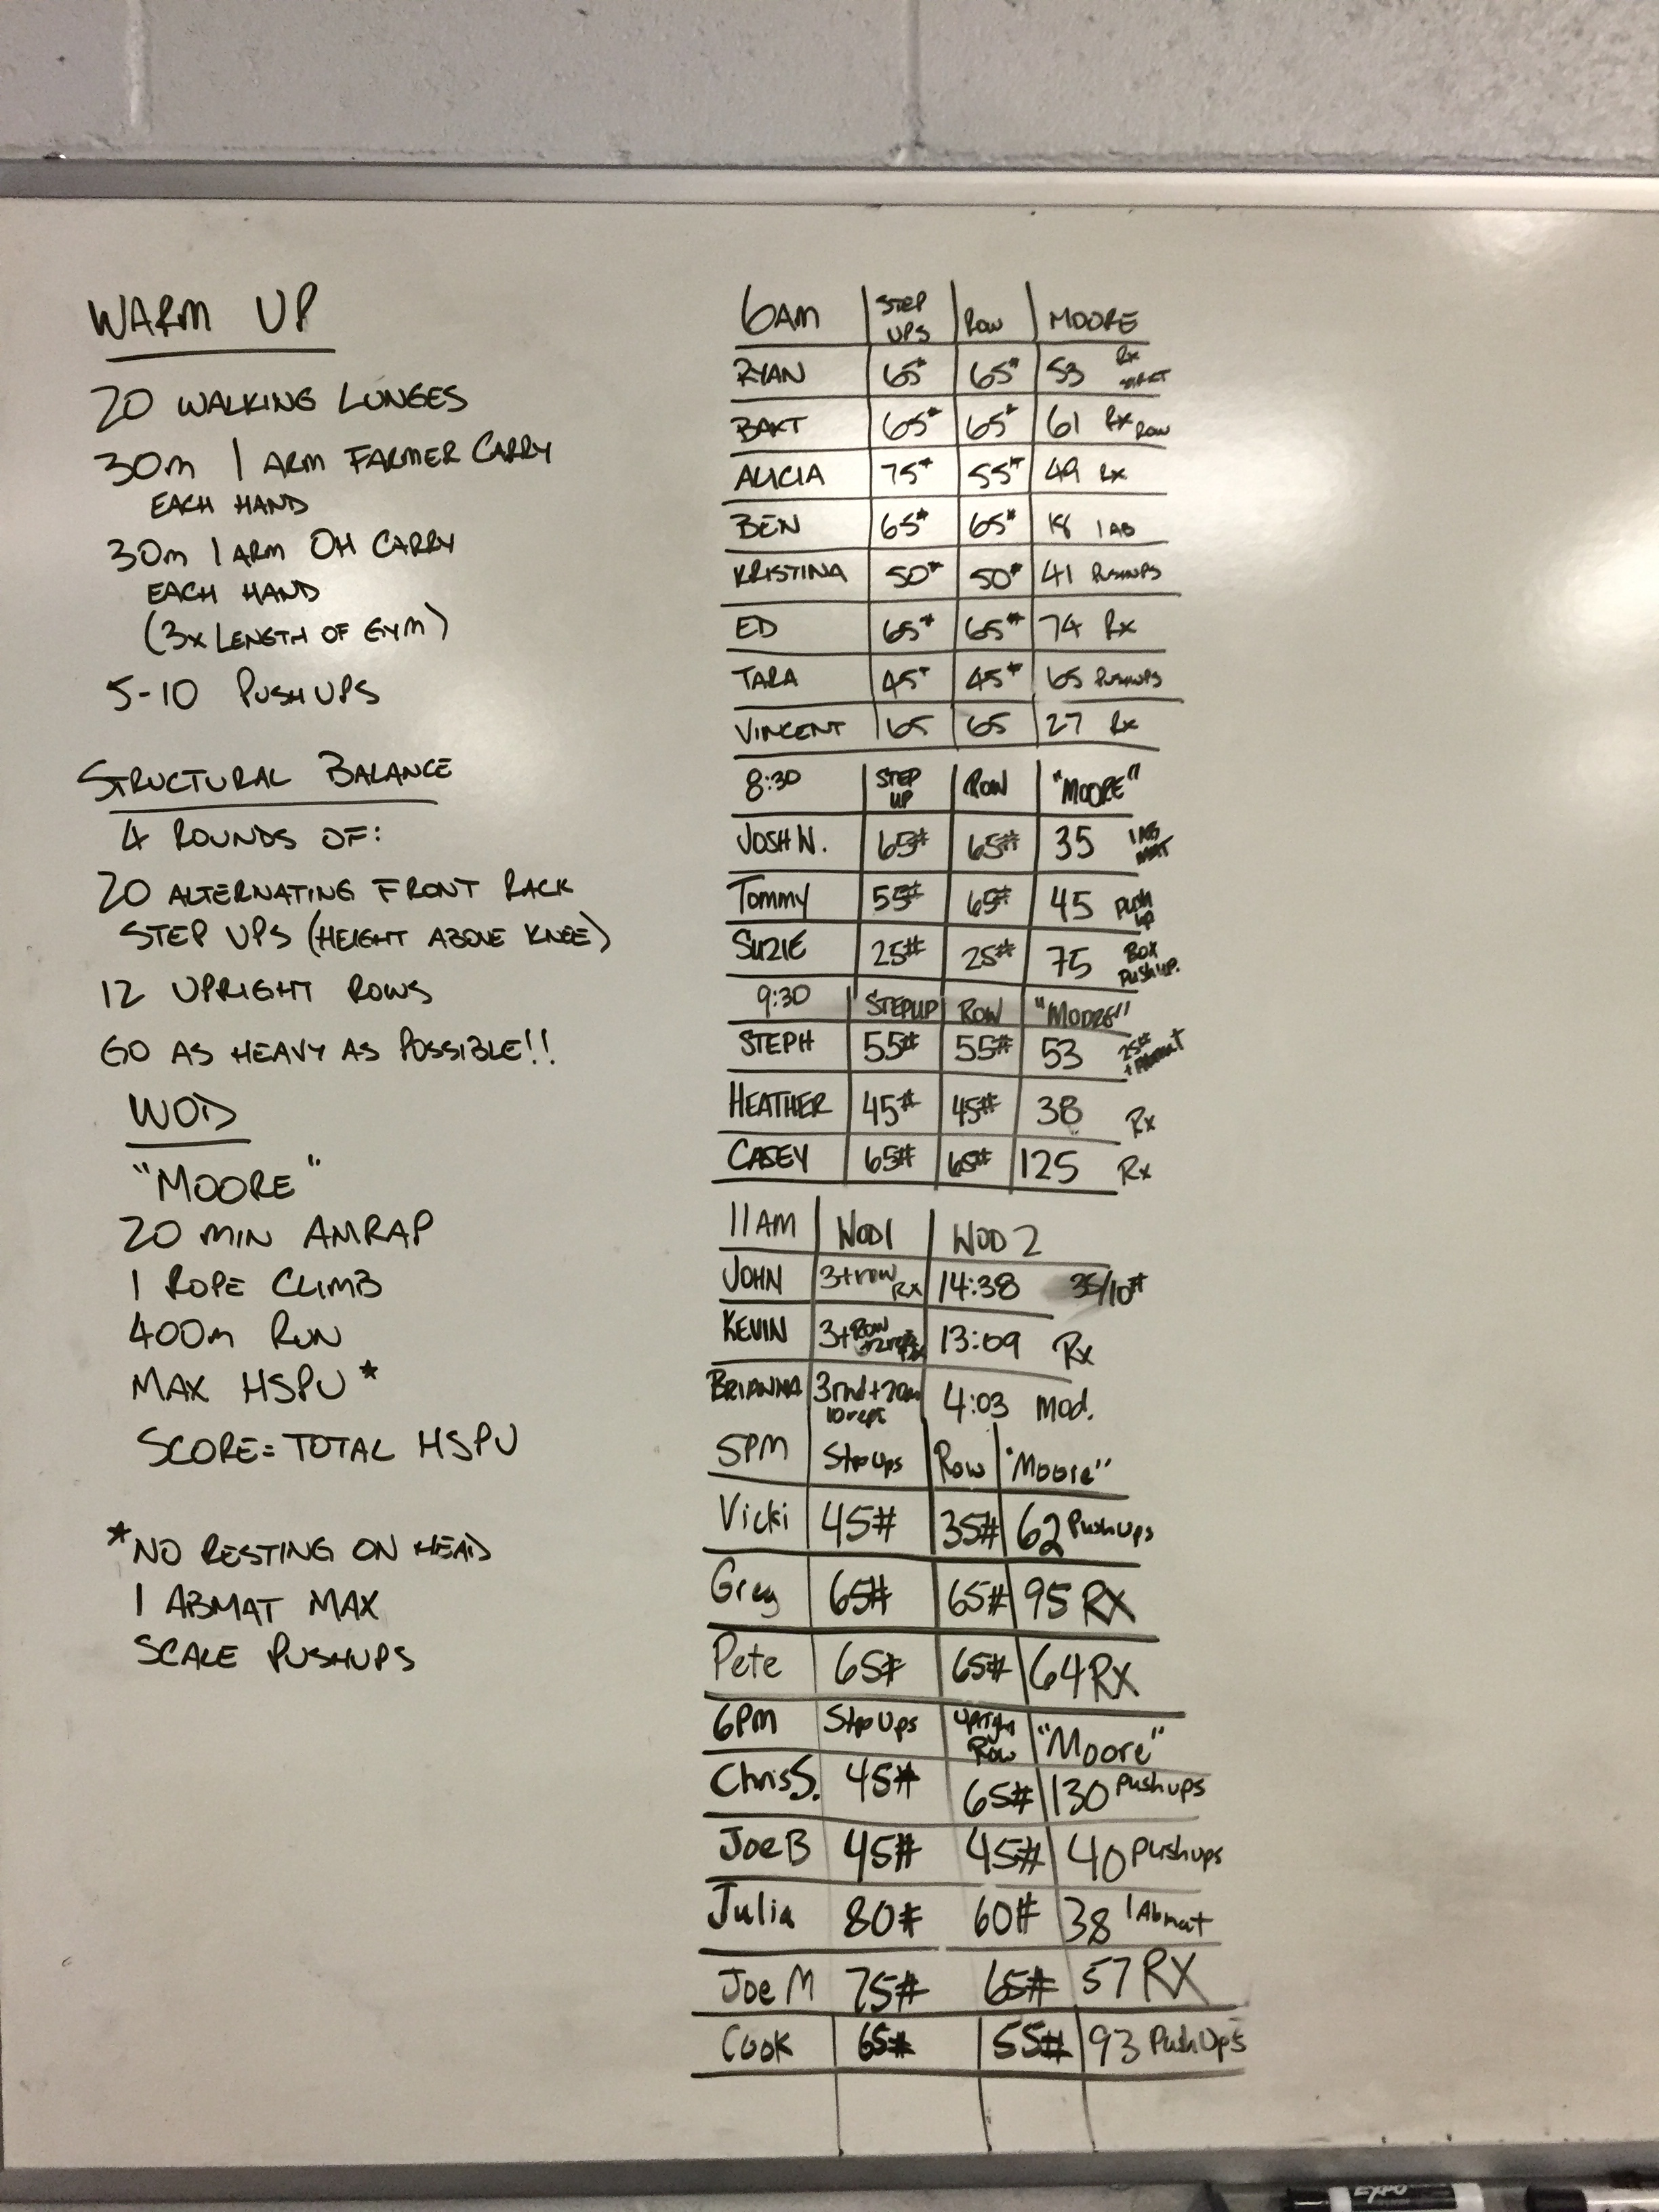 WARM UP
20 WALKING LUNGES
30m 1 ARM FARMER CARRY
EACH HAND
30m 1 ARM OH CARRY
EACH HAND
(3x LENGTH OF GYM)
5-10 PUSHUPS
STRUCTURAL BALANCE
4 ROUNDS OF:
20 ALTERNATING FRONT RACK
STEP UPS (HEIGHT ABOVE KNEE)
12 UPRIGHT ROWS
GO AS HEAVY AS POSSIBLE!!
WOD
"MOORE"
20 MIN AMRAP
1 ROPE CLIMB
400m RUN
MAX HSPU*
SCORE = TOTAL HSPU
*NO RESTING ON HEAD
1 ABMAT MAX
SCALE PUSHUPS
6AM STEP UPS ROW MOORE
RYAN 65# 65# 53 Rx
65# 65# 61 Rx ROW
ALICIA 75# 55# 49 Rx
BEN 65# 65# 18 1 AB
KRISTINA 50# 50# 41 PUSHUPS
ED 65# 65# 74 Rx
TARA 45# 45# 65 PUSHUPS
VINCENT 65 65 27 Rx
8:30 STEP UP ROW "MOORE"
JOSH N. 65# 65# 35 1 AB MAT
Tommy 55# 65# 45 PUSH UP
SUZIE 25# 25# 75 BOX PUSHUP.
9:30 STEPUP ROW "MOORE"
STEPH 55# 55# 53 25# + Abmat
HEATHER 45# 45# 38 Rx
CASEY 65# 65# 125 Rx
11AM WOD1 WOD 2
JOHN 3+row Rx 14:38 35/10#
KEVIN 3+Row 13:09 Rx
BRIANNA 3rnd+20m 10reps 4:03 Mod.
5PM StepUps Row "Moore"
Vicki 45# 35# 62 PushUps
Greg 65# 65# 95 RX
Pete 65# 65# 64 RX
6PM StepUps Upright Row "Moore"
Chris S. 45# 65# 130 Pushups
Joe B 45# 45# 40 Pushups
Julia 80# 60# 38 1 Abmat
Joe M 75# 65# 57 RX
Cook 65# 55# 93 PushUps
EXPO